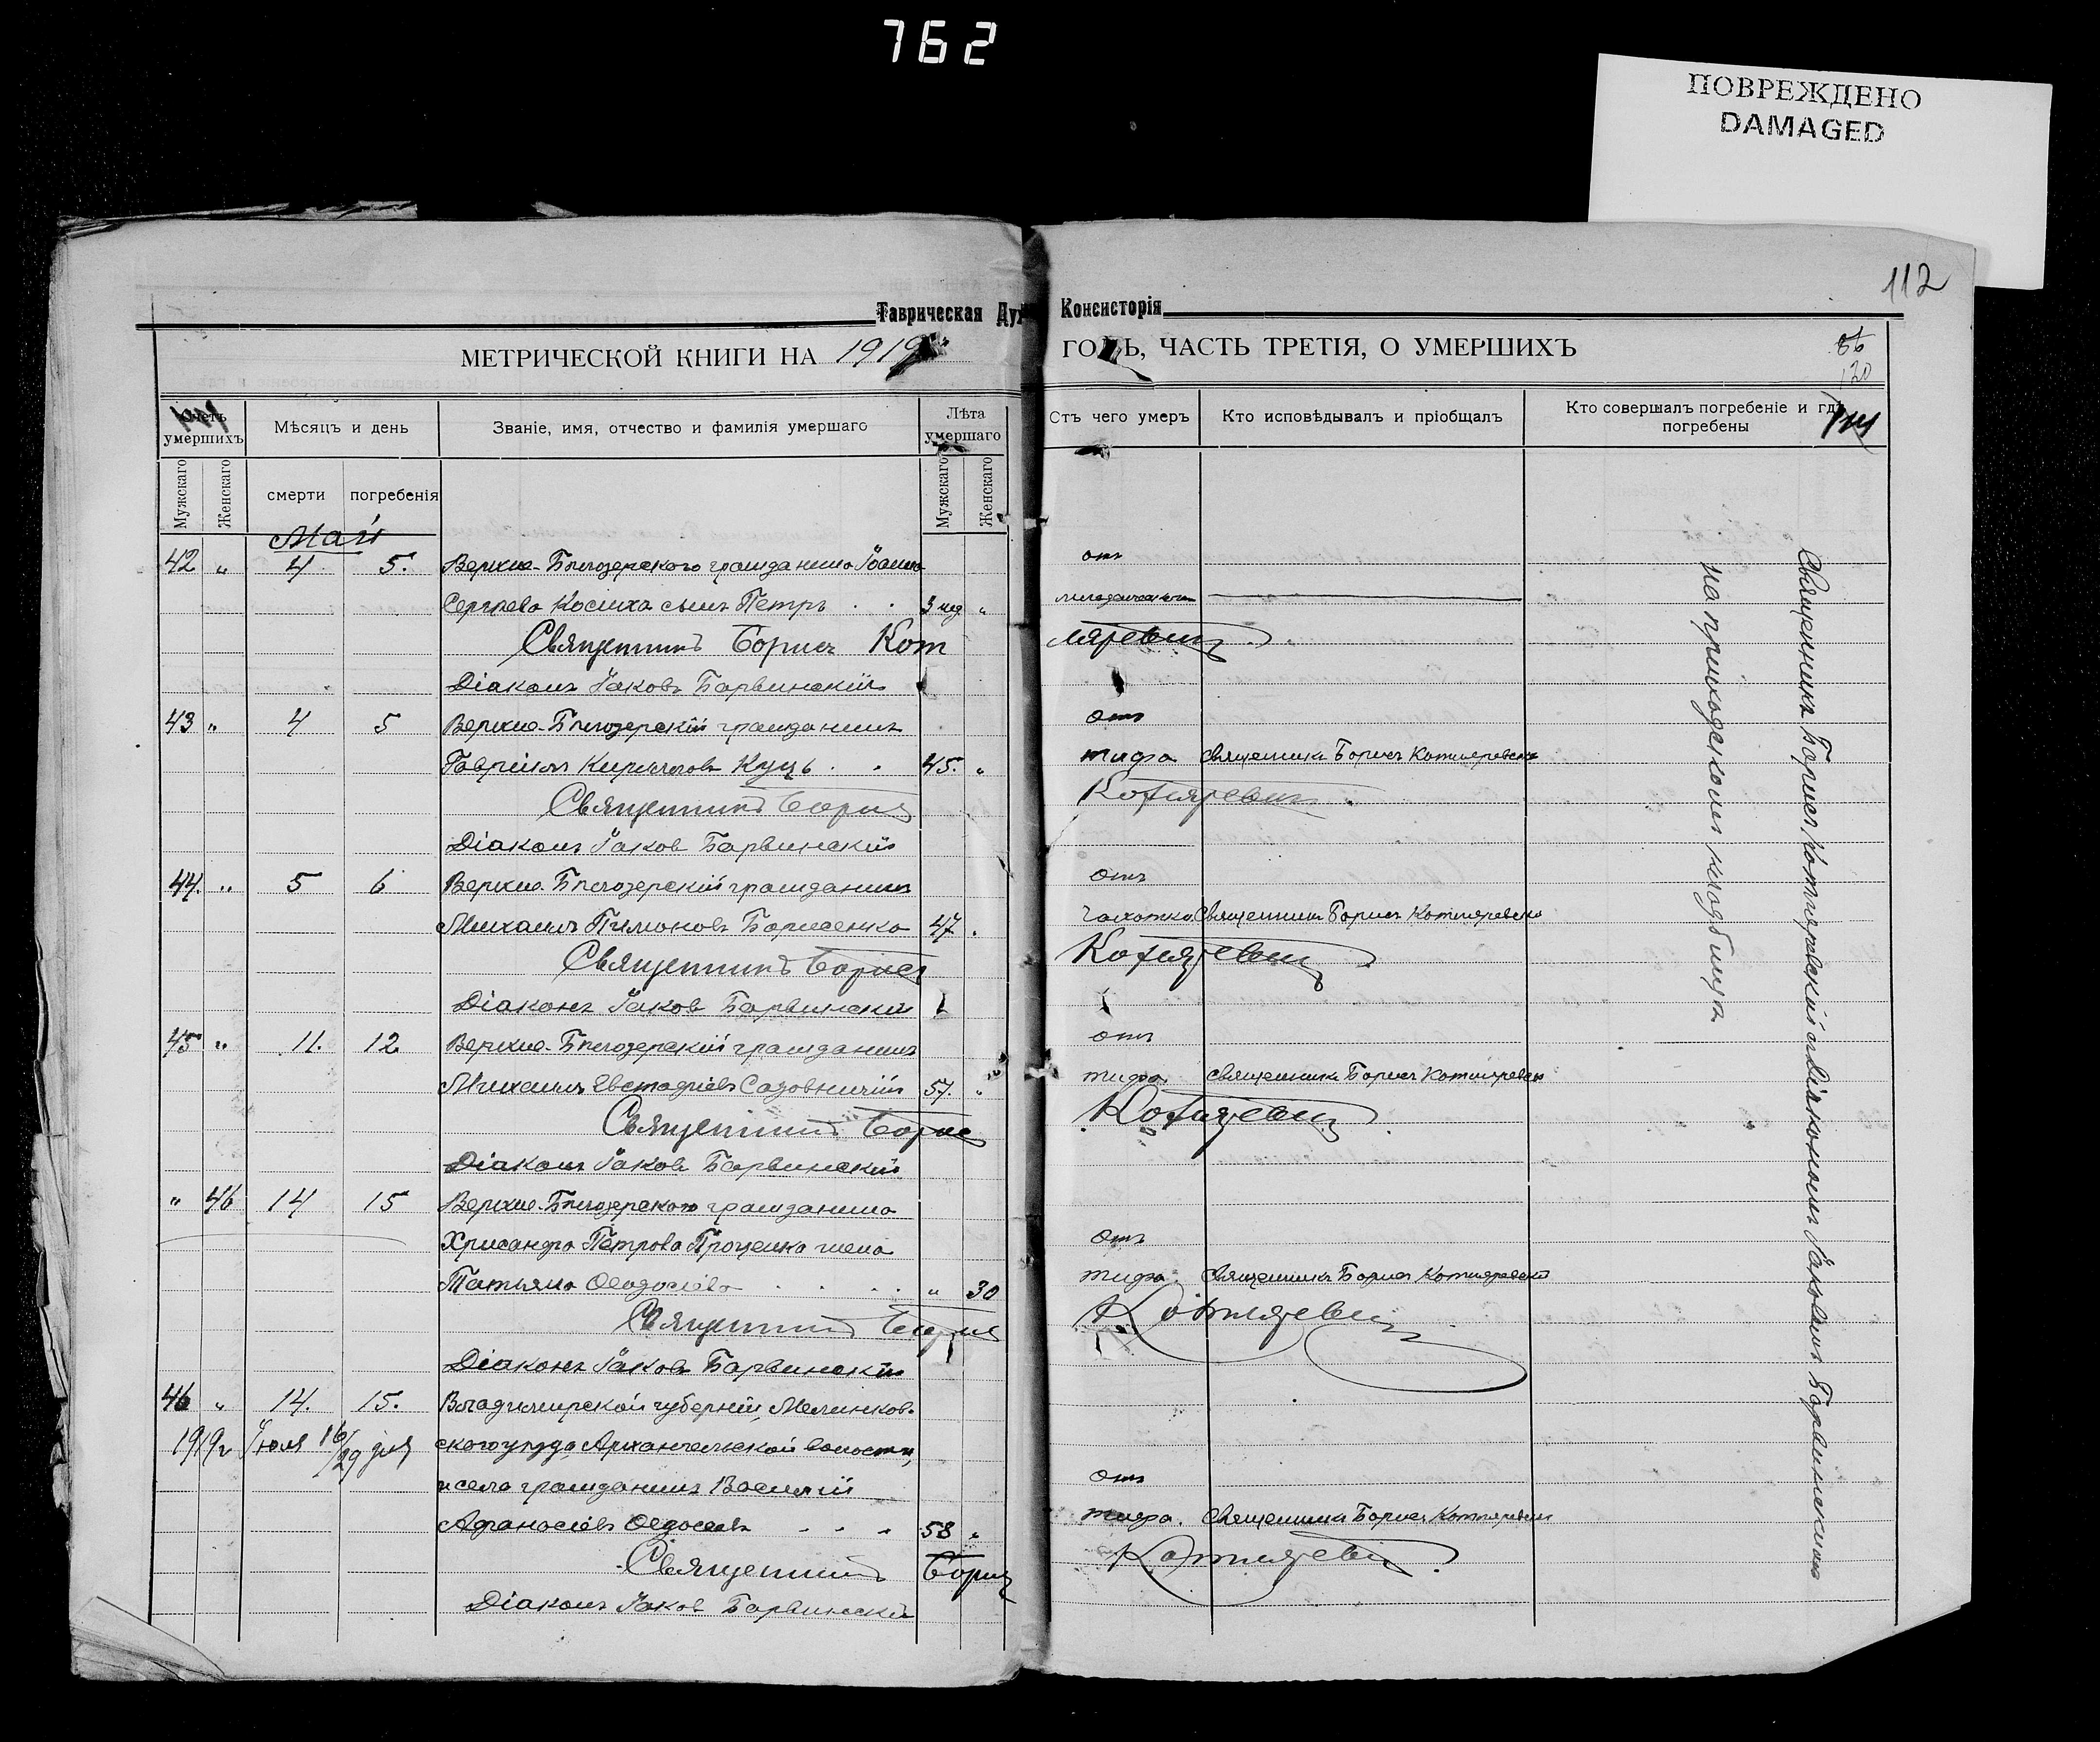 762
ПОВРЕЖДЕНО
DAMAGED
112
Таврическая Дух Консисторія
МЕТРИЧЕСКОЙ КНИГИ НА 1919 ГОДЪ, ЧАСТЬ ТРЕТІЯ, О УМЕРШИХЪ
86
120
Счетъ умершихъ
Мѣсяцъ и день
Званіе, имя, отчество и фамилія умершаго
Лѣта умершаго
Отъ чего умеръ
Кто исповѣдывалъ и пріобщалъ
Кто совершалъ погребеніе и гдѣ погребены
Мужскаго
Женскаго
смерти
погребенія
Мужскаго
Женскаго
Май
42 " 4 5. Верхне-Бѣлозерскаго гражданина Іоанна отъ
Сергѣева Косиха сынъ Петръ . . 3 нед. "
Священникъ Борисъ Котляревскій
Діаконъ Іаковъ Барвинскій
43 " 4 5 Верхне-Бѣлозерскій гражданинъ отъ
Гавріилъ Кирилловъ Куць . . 45. " тифа Священникъ Борисъ Котляревскій
Священникъ Борисъ Котляревскій
Діаконъ Іаковъ Барвинскій
44. " 5 6 Верхне-Бѣлозерскій гражданинъ отъ
Михаилъ Пимоновъ Борисенко 47 . чахотки Священникъ Борисъ Котляревскій
Священникъ Борисъ Котляревскій
Діаконъ Іаковъ Барвинскій
45 " 11. 12 Верхне-Бѣлозерскій гражданинъ отъ
Михаилъ Евстафіевъ Садовничій 57. " тифа Священникъ Борисъ Котляревскій
Священникъ Борисъ Котляревскій
Діаконъ Іаковъ Барвинскій
" 46 14 15 Верхне-Бѣлозерскаго гражданина
Хрисанфа Петрова Проценка жена отъ
Татьяна Ѳеодосіева . . . . " 30 тифа. Священникъ Борисъ Котляревскій
Священникъ Борисъ Котляревскій
Діаконъ Іаковъ Барвинскій
46 " 14. 15. Владимирской губерніи, Меленков-
1919 г Іюля 16/29 дня скаго уѣзда Архангельской волости,
и села гражданинъ Василій отъ
Афанасіевъ Ѳедосеевъ . . . 58 " тифа. Священникъ Борисъ Котляревскій
Священникъ Борисъ Котляревскій
Діаконъ Іаковъ Барвинскій
Священникъ Борисъ Котляревскій съ Діакономъ Іаковомъ Барвинскимъ
на приходскомъ кладбищѣ